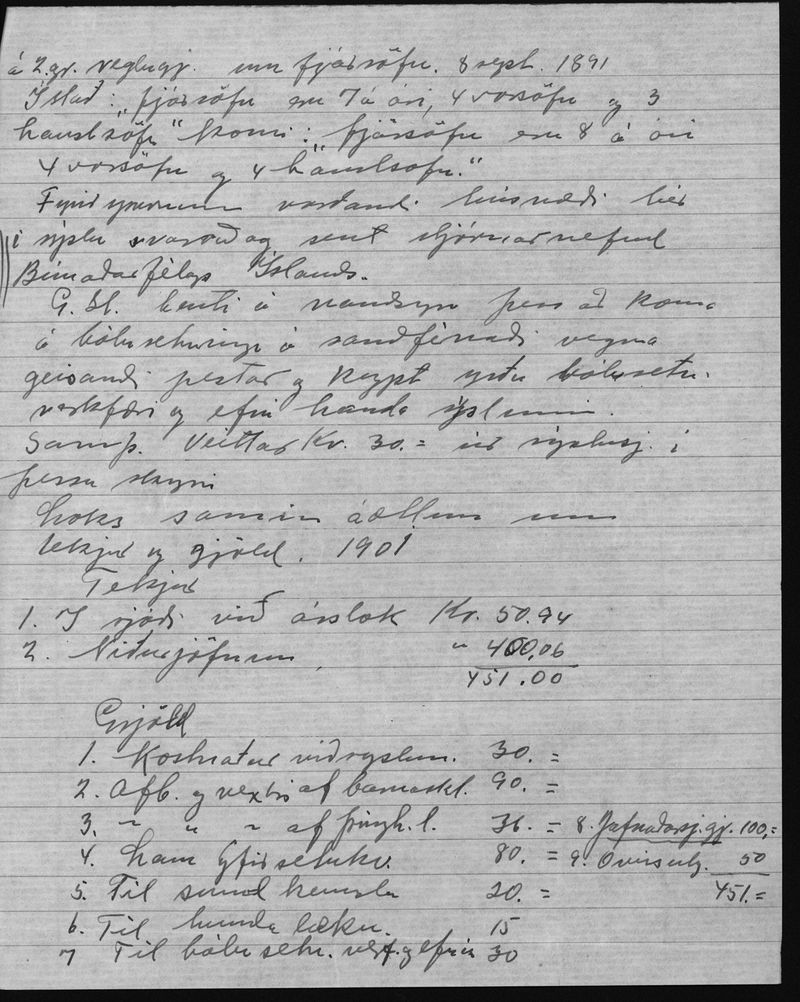 á 2. gr. reglugj. um fjársöfn. 8 sept. 1891
Í stað: „fjársöfn eru 7 á ári, 4 vorsöfn og 3
haustsöfn“ komi: „fjársöfn eru 8 á ári
4 vorsöfn og 4 haustsöfn.“
Fyrirspurnum varðandi húsnæði hér
í sýslu svarað og sent stjórnarnefnd
Búnaðarfélags Íslands.
G. H. benti á nauðsyn þess að koma
á bólusetningu á sauðfénaði vegna
geisandi pestar og keypt yrðu bólusetn.
verkfæri og efni handa sýslunni.
Samþ. Veittar Kr. 30.= úr sýslusj. í
þessu skyni
Loks samin áætlun um
tekjur og gjöld. 1901
Tekjur
1. Í sjóði við árslok Kr. 50.94
2. Niðurjöfnun " 400.06
451.00
Gjöld
1. Kostnaður við sýslun. 30. =
2. Afb. og vextir af barnaskl. 90. =
3. " " " af þingh. l. 36. = 8. Jafnaðarsj.gj. 100,=
4. Laun yfirsetukv. 80. = 9. Óviss utg. 50
5. Til sundkenslu 20. = 451.=
6. Til hundalækn. 15
7 Til bólusetn. verkf. og efnis 30